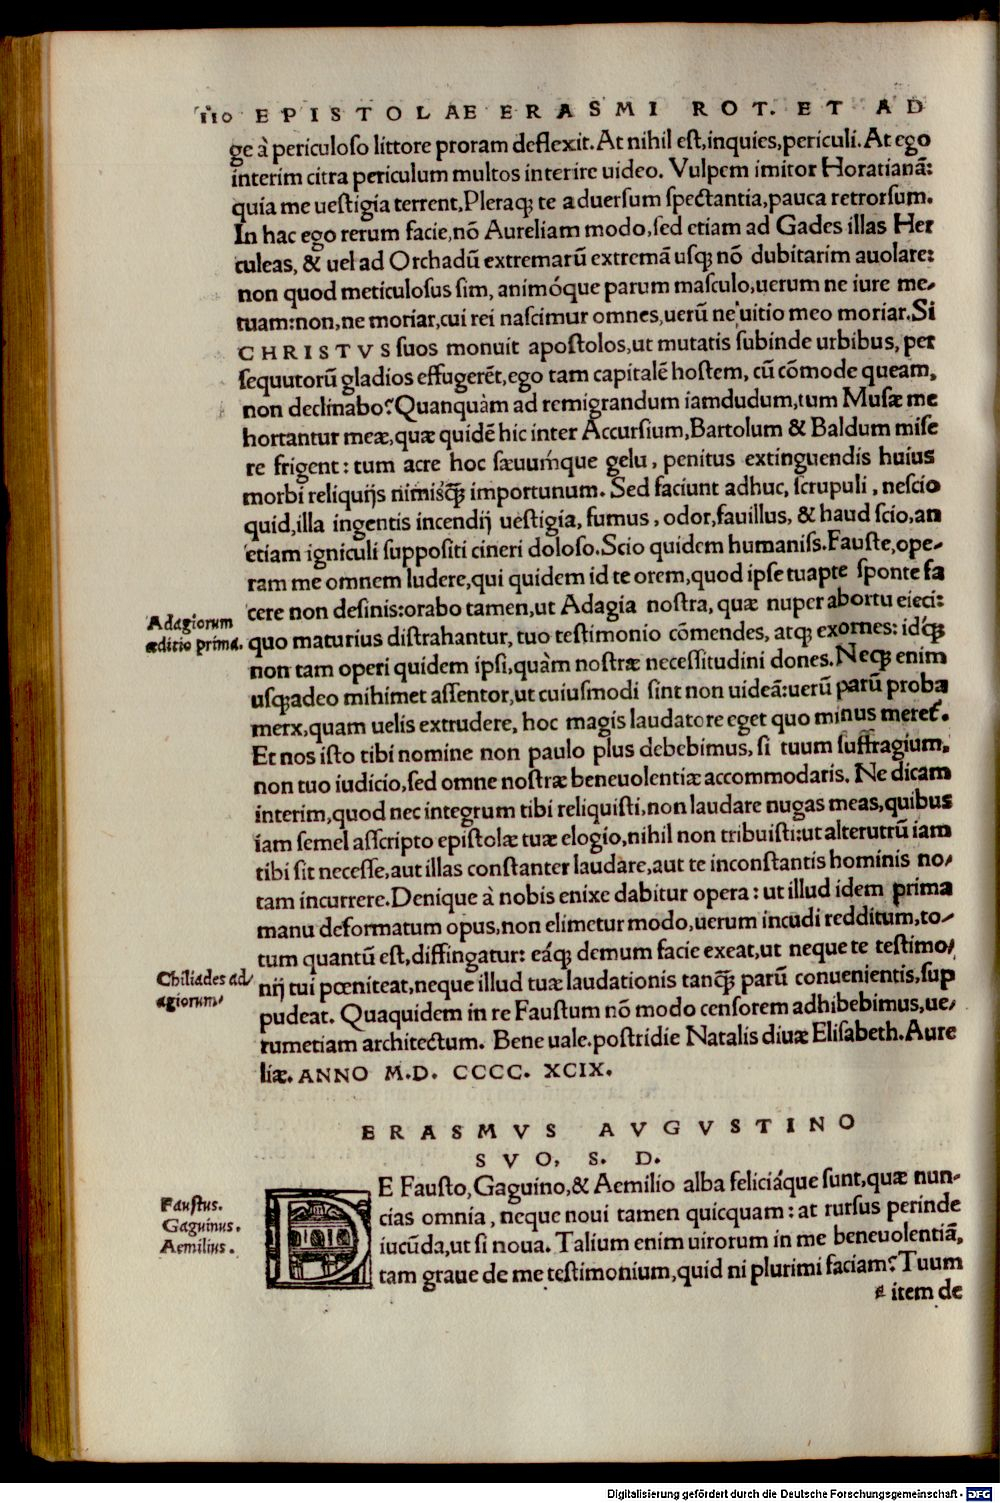 110 EPISTOLAE ERASMI ROT. ET AD
ge à periculoso littore proram deflexit. At nihil est, inquies, periculi. At ego
interim citra periculum multos interire uideo. Vulpem imitor Horatianã:
quia me uestigia terrent, Pleraq; te aduersum spectantia, pauca retrorsum.
In hac ego rerum facie, nõ Aureliam modo, sed etiam ad Gades illas Her
culeas, & uel ad Orchadũ extremarũ extremã usq; nõ dubitarim auolare:
non quod meticulosus sim, animóque parum masculo, uerum ne iure me-
tuam: non, ne moriar, cui rei nascimur omnes, uerũ ne uitio meo moriar. Si
CHRISTVS suos monuit apostolos, ut mutatis subinde urbibus, per
sequutorũ gladios effugerẽt, ego tam capitalẽ hostem, cũ cõmode queam,
non declinabo? Quanquàm ad remigrandum iamdudum, tum Musæ me
hortantur meæ, quæ quidẽ hic inter Accursium, Bartolum & Baldum mise
re frigent: tum acre hoc sæuumq́ue gelu, penitus extinguendis huius
morbi reliquijs nimisq̃; importunum. Sed faciunt adhuc, scrupuli, nescio
quid, illa ingentis incendij uestigia, fumus, odor, fauillus, & haud scio, an
etiam igniculi suppositi cineri doloso. Scio quidem humaniss. Fauste, ope-
ram me omnem ludere, qui quidem id te orem, quod ipse tuapte sponte fa
cere non desinis: orabo tamen, ut Adagia nostra, quæ nuper abortu eieci:
Adagiorum
æditio prima.
quo maturius distrahantur, tuo testimonio cõmendes, atq; exornes: idq́;
non tam operi quidem ipsi, quàm nostræ necessitudini dones. Neq; enim
usq;adeo mihimet assentor, ut cuiusmodi sint non uideã: uerũ parũ proba
merx, quam uelis extrudere, hoc magis laudatore eget quo minus meret.
Et nos isto tibi nomine non paulo plus debebimus, si tuum suffragium,
non tuo iudicio, sed omne nostræ beneuolentiæ accommodaris. Ne dicam
interim, quod nec integrum tibi reliquisti, non laudare nugas meas, quibus
iam semel asscripto epistolæ tuæ elogio, nihil non tribuisti: ut alterutrũ iam
tibi sit necesse, aut illas constanter laudare, aut te inconstantis hominis no-
tam incurrere. Denique à nobis enixe dabitur opera: ut illud idem prima
manu deformatum opus, non elimetur modo, uerum incudi redditum, to-
tum quantũ est, diffingatur: eáq; demum facie exeat, ut neque te testimo-
Chiliades ad-
agiorum.
nij tui pœniteat, neque illud tuæ laudationis tanq̃; parũ conuenientis, sup
pudeat. Quaquidem in re Faustum nõ modo censorem adhibebimus, ue-
rumetiam architectum. Bene uale. postridie Natalis diuæ Elisabeth. Aure
liæ. ANNO M.D. CCCC. XCIX.
ERASMVS AVGVSTINO
SVO, S. D.
Faustus.
Gaguinus.
Aemilius.
DE Fausto, Gaguino, & Aemilio alba feliciáque sunt, quæ nun-
cias omnia, neque noui tamen quicquam: at rursus perinde
iucũda, ut si noua. Talium enim uirorum in me beneuolentiã,
tam graue de me testimonium, quid ni plurimi faciam? Tuum
item de
Digitalisierung gefördert durch die Deutsche Forschungsgemeinschaft - DFG